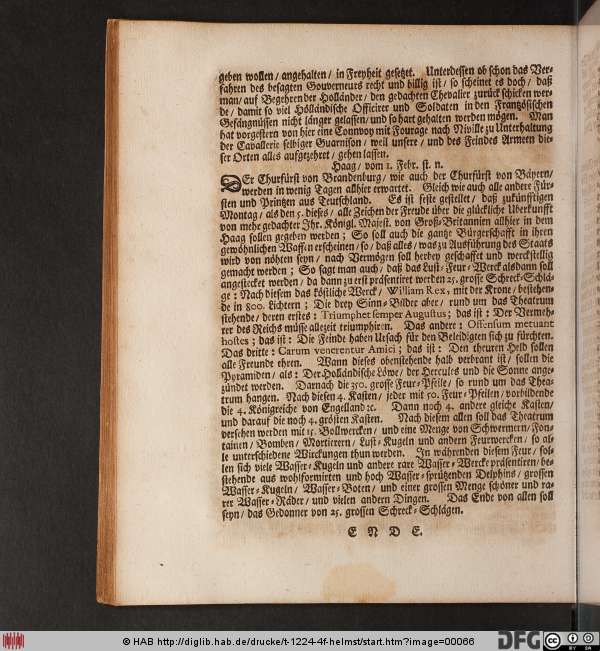 geben wollen / angehalten / in Freyheit gesetzet. Unterdessen ob schon das Ver-
fahren des besagten Gouverneurs recht und billig ist / so scheinet es doch / daß
man / auf Begehren der Holländer / den gedachten Chevalier zurück schicken wer-
de / damit so viel Holländische Officirer und Soldaten in den Frantzösischen
Gefängnüssen nicht länger gelassen / und so hart gehalten werden mögen. Man
hat vorgestern von hier eine Connvoy mit Fourage nach Niville zu Unterhaltung
der Cavallerie selbiger Guarnison / weil unsere / und des Feindes Armeen die-
ser Orten alles aufgezehret / gehen lassen.
Haag / vom 1. Febr. st. n.
DEr Churfürst von Brandenburg / wie auch der Churfürst von Bäyern /
werden in wenig Tagen allhier erwartet. Gleich wie auch alle andere Für-
sten und Printzen aus Teutschland. Es ist feste gestellet / daß zukünfftigen
Montag / als den 5. dieses / alle Zeichen der Freude über die glückliche Uberkunfft
von mehr gedachter Jhr. Königl. Majest. von Groß-Britannien allhier in den
Haag sollen gegeben werden ; So soll auch die gantze Bürgerschafft in ihren
gewöhnlichen Waffen erscheinen / so / daß alles / was zu Ausführung des Staats
wird von nöhten seyn / nach Vermögen soll herbey geschaffet und werckstellig
gemacht werden ; So sagt man auch / daß das Lust-Feur-Werck alsdann soll
angestecket werden / da dann zu erst præsentiret werden 25. grosse Schreck-Schlä-
ge : Nach diesem das köstliche Werck / William Rex, mit der Krone / bestehen-
de in 800. Lichtern ; Die drey Sinn-Bilder aber / rund um das Theatrum
stehende / deren erstes : Triumphet semper Augustus ; das ist : Der Vermeh-
rer des Reichs müsse allezeit triumphiren. Das andere : Offensum metuant
hostes ; das ist : Die Feinde haben Ursach für den Beleidigten sich zu fürchten.
Das dritte : Carum venerentur Amici ; das ist : Den theuren Held sollen
alle Freunde ehren. Wann dieses obenstehende halb verbrant ist / sollen die
Pyramiden / als : Der Holländische Löwe / der Hercules und die Sonne ange-
zündet werden. Darnach die 350. grosse Feur-Pfeile / so rund um das Thea-
trum hangen. Nach diesen 4. Kasten / jeder mit 50. Feur-Pfeilen / vorbildende
die 4. Königreiche von Engelland ꝛc. Dann noch 4. andere gleiche Kasten /
und darauf die noch 4. grösten Kasten. Nach diesem allen soll das Theatrum
versehen werden mit 15. Bollwercken / und eine Menge von Schwermern / Fon-
tainen / Bomben / Mortierern / Lust-Kugeln und andern Feurwercken / so al-
le unterschiedene Wirckungen thun werden. In währenden diesem Feur / sol-
len sich viele Wasser-Kugeln und andere rare Wasser-Wercke præsentiren / be-
stehende aus wohlformirten und hoch Wasser-sprützenden Delphins / grossen
Wasser-Kugeln / Wasser-Boten / und einer grossen Menge schöner und ra-
rer Wasser-Räder / und vielen andern Dingen. Das Ende von allen soll
seyn / das Gedonner von 25. grossen Schreck-Schlägen.
E N D E.
© HAB http://diglib.hab.de/drucke/t-1224-4f-helmst/start.htm?image=00066
DFG
cc BY SA